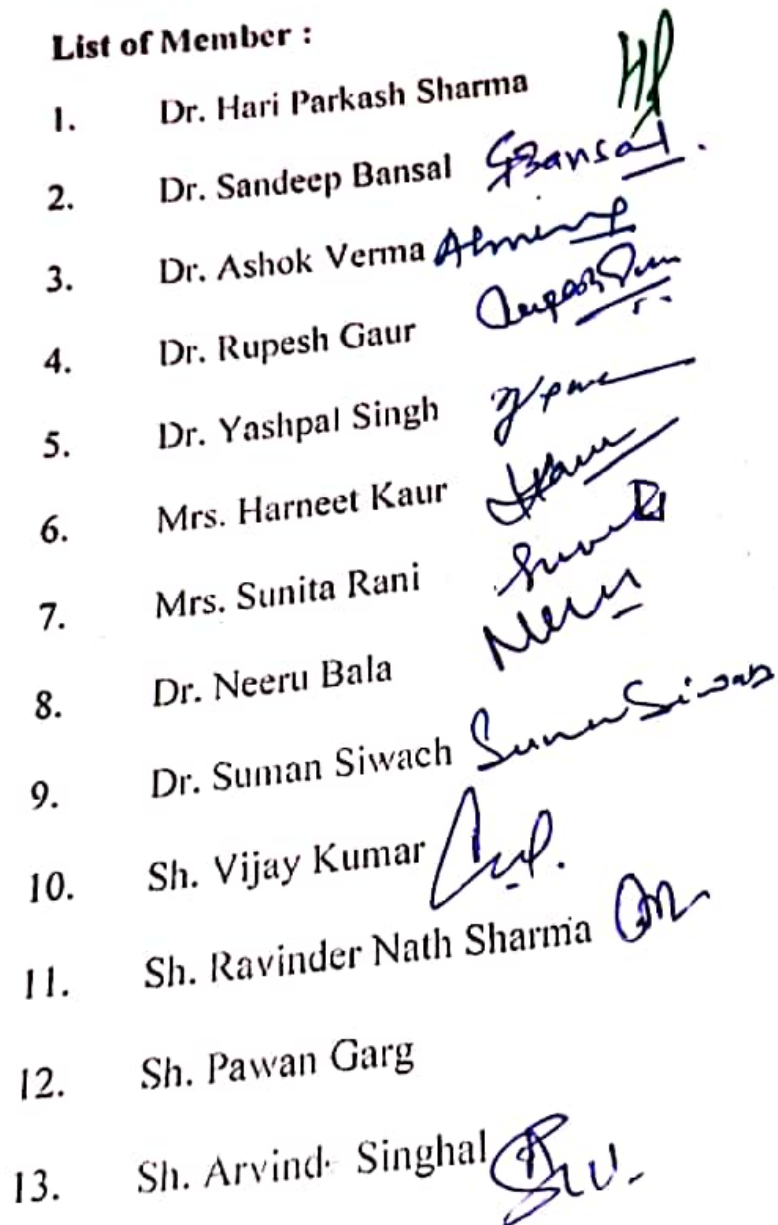 List of Member :
1. Dr. Hari Parkash Sharma
2. Dr. Sandeep Bansal Bansal.
3. Dr. Ashok Verma
4. Dr. Rupesh Gaur
5. Dr. Yashpal Singh
6. Mrs. Harneet Kaur
7. Mrs. Sunita Rani
8. Dr. Neeru Bala Neeru
9. Dr. Suman Siwach
10. Sh. Vijay Kumar
11. Sh. Ravinder Nath Sharma
12. Sh. Pawan Garg
13. Sh. Arvind Singhal